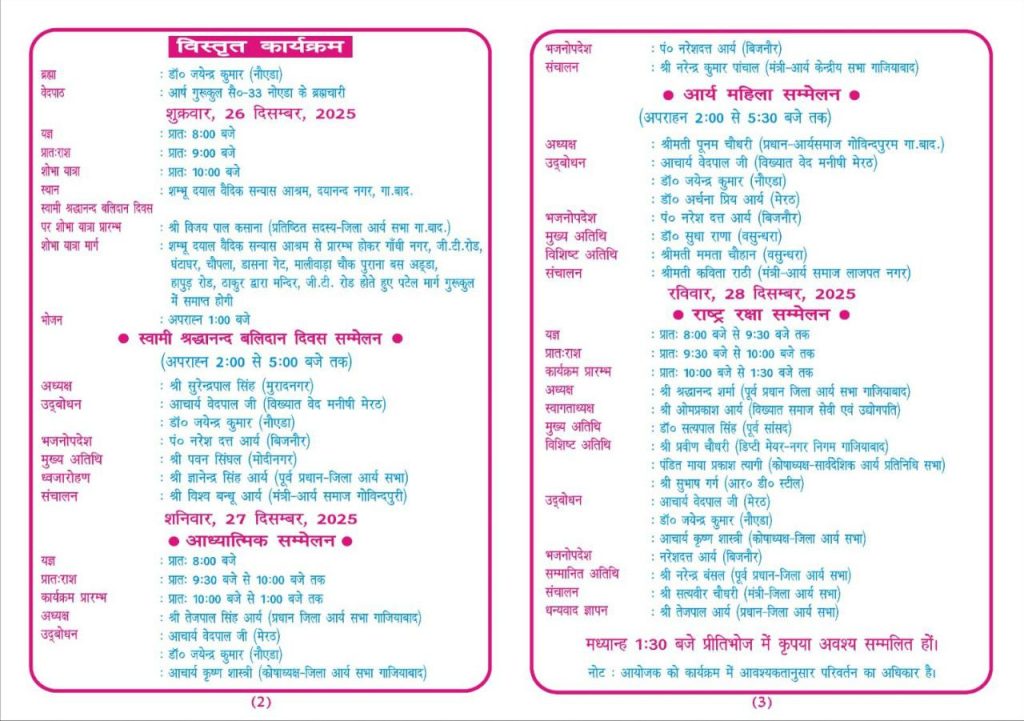 विस्तृत कार्यक्रम
ब्रह्मा : डॉ० जयेन्द्र कुमार (नौएडा)
वेदपाठ : आर्ष गुरूकुल सै०-33 नोएडा के ब्रह्मचारी
शुक्रवार, 26 दिसम्बर, 2025
यज्ञ : प्रातः 8:00 बजे
प्रातःराश : प्रातः 9:00 बजे
शोभा यात्रा : प्रातः 10:00 बजे
स्थान : शम्भू दयाल वैदिक सन्यास आश्रम, दयानन्द नगर, गा.बाद.
स्वामी श्रद्धानन्द बलिदान दिवस
पर शोभा यात्रा प्रारम्भ : श्री विजय पाल कसाना (प्रतिष्ठित सदस्य-जिला आर्य सभा गा.बाद.)
शोभा यात्रा मार्ग : शम्भू दयाल वैदिक सन्यास आश्रम से प्रारम्भ होकर गाँधी नगर, जी.टी.रोड,
घंटाघर, चौपला, डासना गेट, मालीवाड़ा चौक पुराना बस अड्डा,
हापुड़ रोड, ठाकुर द्वारा मन्दिर, जी.टी. रोड होते हुए पटेल मार्ग गुरूकुल
में समाप्त होगी
भोजन : अपराह्न 1:00 बजे
● स्वामी श्रद्धानन्द बलिदान दिवस सम्मेलन ●
(अपराह्न 2:00 से 5:00 बजे तक)
अध्यक्ष : श्री सुरेन्द्रपाल सिंह (मुरादनगर)
उद्बोधन : आचार्य वेदपाल जी (विख्यात वेद मनीषी मेरठ)
: डॉ० जयेन्द्र कुमार (नौएडा)
भजनोपदेश : पं० नरेश दत्त आर्य (बिजनौर)
मुख्य अतिथि : श्री पवन सिंघल (मोदीनगर)
ध्वजारोहण : श्री ज्ञानेन्द्र सिंह आर्य (पूर्व प्रधान-जिला आर्य सभा)
संचालन : श्री विश्व बन्धू आर्य (मंत्री-आर्य समाज गोविन्दपुरी)
शनिवार, 27 दिसम्बर, 2025
● आध्यात्मिक सम्मेलन ●
यज्ञ : प्रातः 8:00 बजे
प्रातःराश : प्रातः 9:30 बजे से 10:00 बजे तक
कार्यक्रम प्रारम्भ : प्रातः 10:00 बजे से 1:00 बजे तक
अध्यक्ष : श्री तेजपाल सिंह आर्य (प्रधान जिला आर्य सभा गाजियाबाद)
उद्बोधन : आचार्य वेदपाल जी (मेरठ)
: डॉ० जयेन्द्र कुमार (नौएडा)
: आचार्य कृष्ण शास्त्री (कोषाध्यक्ष-जिला आर्य सभा गाजियाबाद)
(2)
भजनोपदेश : पं० नरेशदत्त आर्य (बिजनौर)
संचालन : श्री नरेन्द्र कुमार पांचाल (मंत्री-आर्य केन्द्रीय सभा गाजियाबाद)
● आर्य महिला सम्मेलन ●
(अपराहन 2:00 से 5:30 बजे तक)
अध्यक्ष : श्रीमती पूनम चौधरी (प्रधान-आर्यसमाज गोविन्दपुरम गा.बाद.)
उद्बोधन : आचार्य वेदपाल जी (विख्यात वेद मनीषी मेरठ)
: डॉ० जयेन्द्र कुमार (नौएडा)
: डॉ० अर्चना प्रिय आर्य (मेरठ)
भजनोपदेश : पं० नरेश दत्त आर्य (बिजनौर)
मुख्य अतिथि : डॉ० सुधा राणा (वसुन्धरा)
विशिष्ट अतिथि : श्रीमती ममता चौहान (वसुन्धरा)
संचालन : श्रीमती कविता राठी (मंत्री-आर्य समाज लाजपत नगर)
रविवार, 28 दिसम्बर, 2025
● राष्ट्र रक्षा सम्मेलन ●
यज्ञ : प्रातः 8:00 बजे से 9:30 बजे तक
प्रातःराश : प्रातः 9:30 बजे से 10:00 बजे तक
कार्यक्रम प्रारम्भ : प्रातः 10:00 बजे से 1:30 बजे तक
अध्यक्ष : श्री श्रद्धानन्द शर्मा (पूर्व प्रधान जिला आर्य सभा गाजियाबाद)
स्वागताध्यक्ष : श्री ओमप्रकाश आर्य (विख्यात समाज सेवी एवं उद्योगपति)
मुख्य अतिथि : डॉ० सत्यपाल सिंह (पूर्व सांसद)
विशिष्ट अतिथि : श्री प्रवीण चौधरी (डिप्टी मेयर-नगर निगम गाजियाबाद)
: पंडित माया प्रकाश त्यागी (कोषाध्यक्ष-सार्वदेशिक आर्य प्रतिनिधि सभा)
: श्री सुभाष गर्ग (आर० डी० स्टील)
उद्बोधन : आचार्य वेदपाल जी (मेरठ)
: डॉ० जयेन्द्र कुमार (नौएडा)
: आचार्य कृष्ण शास्त्री (कोषाध्यक्ष-जिला आर्य सभा)
भजनोपदेश : नरेशदत्त आर्य (बिजनौर)
सम्मानित अतिथि : श्री नरेन्द्र बंसल (पूर्व प्रधान-जिला आर्य सभा)
संचालन : श्री सत्यवीर चौधरी (मंत्री-जिला आर्य सभा)
धन्यवाद ज्ञापन : श्री तेजपाल आर्य (प्रधान-जिला आर्य सभा)
मध्यान्ह 1:30 बजे प्रीतिभोज में कृपया अवश्य सम्मलित हों।
नोट : आयोजक को कार्यक्रम में आवश्यकतानुसार परिवर्तन का अधिकार है।
(3)